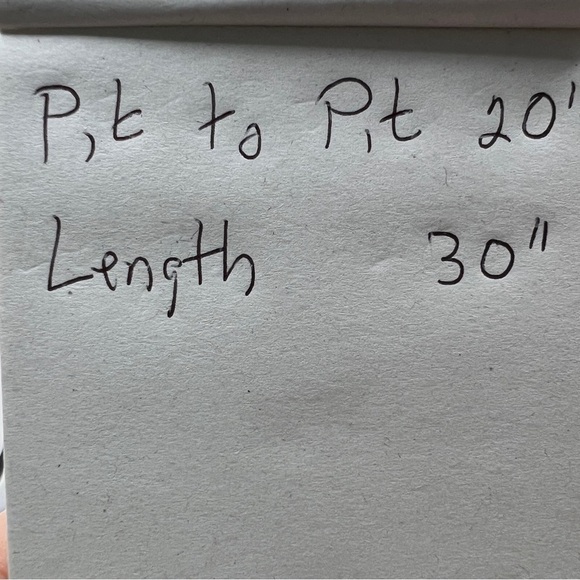 Pit to Pit 20'
Length 30"